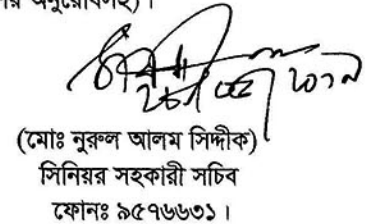 অনুরোধসহ)।
(মোঃ নুরুল আলম সিদ্দীক)
সিনিয়র সহকারী সচিব
ফোনঃ ৯৫৭৬৬৩১।